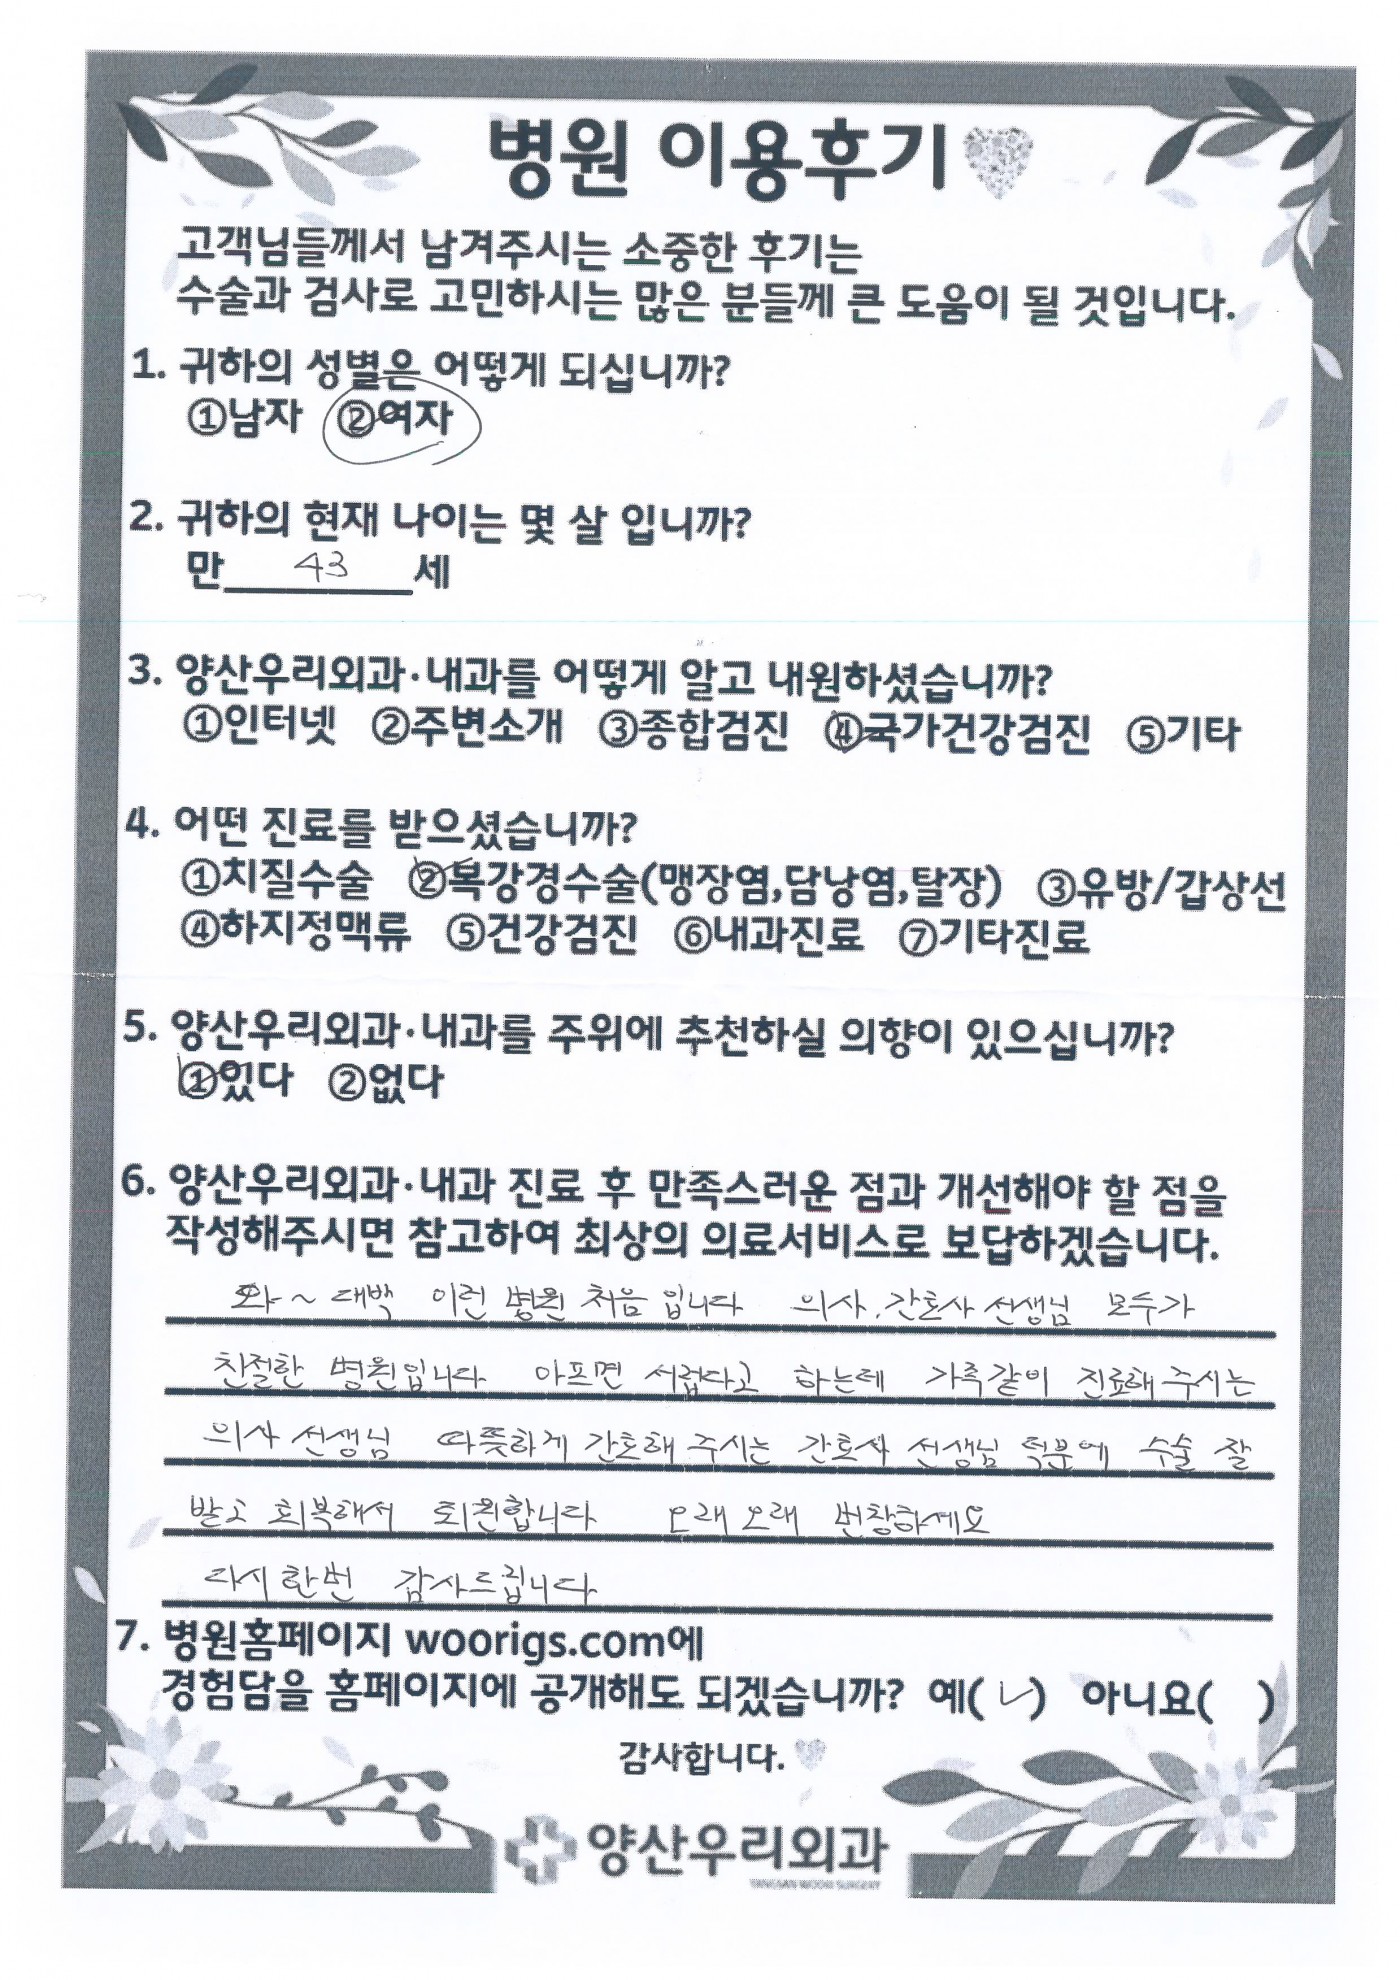 병원 이용후기
고객님들께서 남겨주시는 소중한 후기는
수술과 검사로 고민하시는 많은 분들께 큰 도움이 될 것입니다.
1. 귀하의 성별은 어떻게 되십니까?
①남자 ②여자
2. 귀하의 현재 나이는 몇 살 입니까?
만 43 세
3. 양산우리외과·내과를 어떻게 알고 내원하셨습니까?
①인터넷 ②주변소개 ③종합검진 ④국가건강검진 ⑤기타
4. 어떤 진료를 받으셨습니까?
①치질수술 ②복강경수술(맹장염,담낭염,탈장) ③유방/갑상선
④하지정맥류 ⑤건강검진 ⑥내과진료 ⑦기타진료
5. 양산우리외과·내과를 주위에 추천하실 의향이 있으십니까?
①있다 ②없다
6. 양산우리외과·내과 진료 후 만족스러운 점과 개선해야 할 점을
작성해주시면 참고하여 최상의 의료서비스로 보답하겠습니다.
와~ 대박 이런 병원 처음 입니다 의사, 간호사 선생님 모두가
친절한 병원입니다 아프면 서럽다고 하는데 가족같이 진료해 주시는
의사 선생님 따뜻하게 간호해 주시는 간호사 선생님 덕분에 수술 잘
받고 회복해서 퇴원합니다 오래오래 번창하세요
다시한번 감사드립니다
7. 병원홈페이지 woorigs.com에
경험담을 홈페이지에 공개해도 되겠습니까? 예(✓) 아니요( )
감사합니다.
양산우리외과
YANGSAN WOORI SURGERY